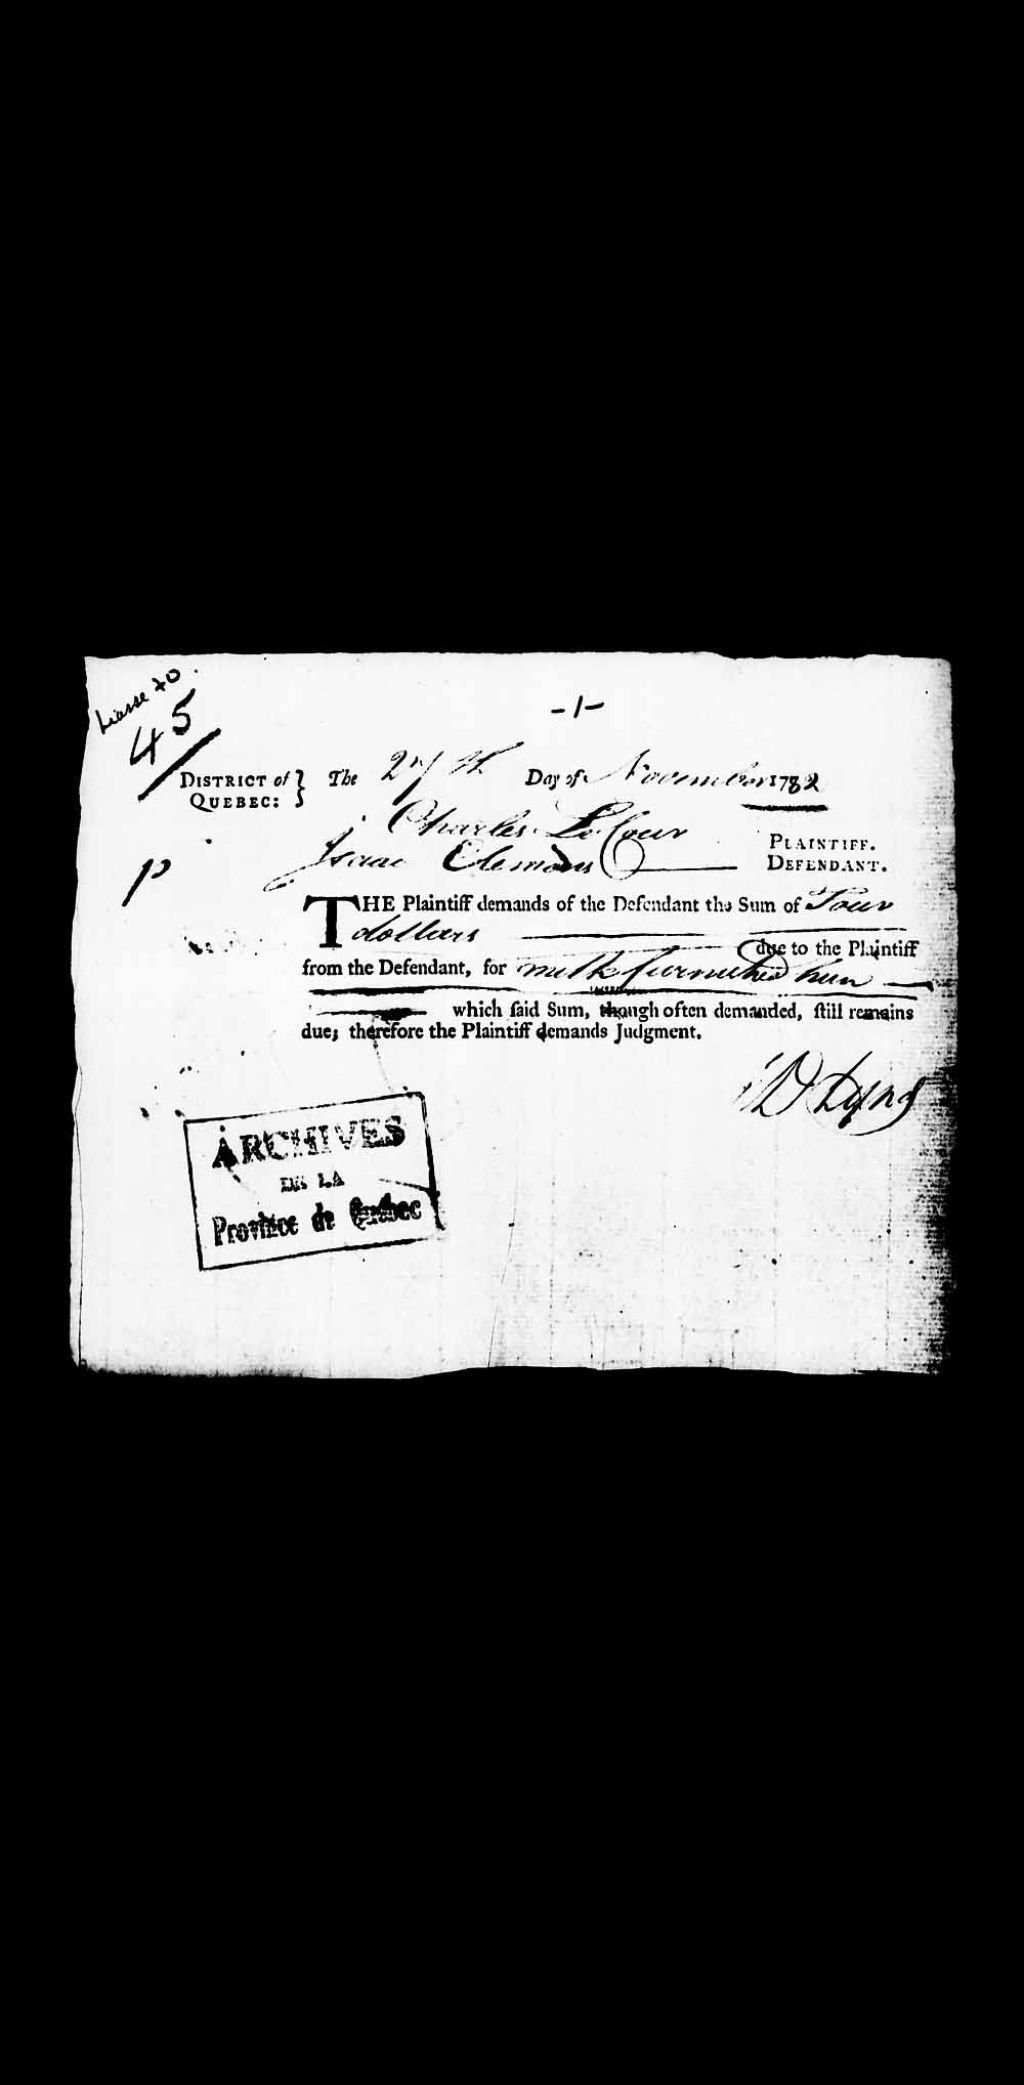 Liasse 70.
45
-1-
DISTRICT of } The 27th Day of November 1782
QUEBEC:
Charles Le Cour PLAINTIFF.
p
Isaac Clemons DEFENDANT.
THE Plaintiff demands of the Defendant the Sum of Four
dollars due to the Plaintiff
from the Defendant, for milk furnished him
which ſaid Sum, though often demanded, ſtill remains
due; therefore the Plaintiff demands Judgment.
D Lynd
ARCHIVES
DE LA
Province de Québec